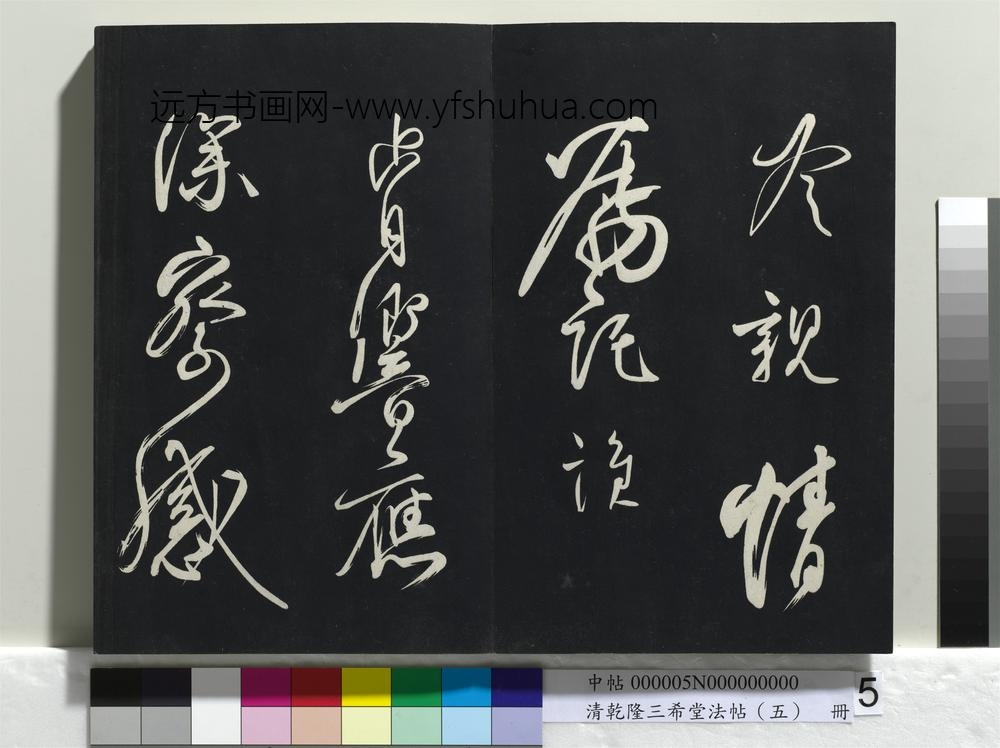 远方书画网-www.yfshuhua.com
親情
屬託須
肯響應
深察感
中帖 000005N000000000
清乾隆三希堂法帖（五） 冊
5